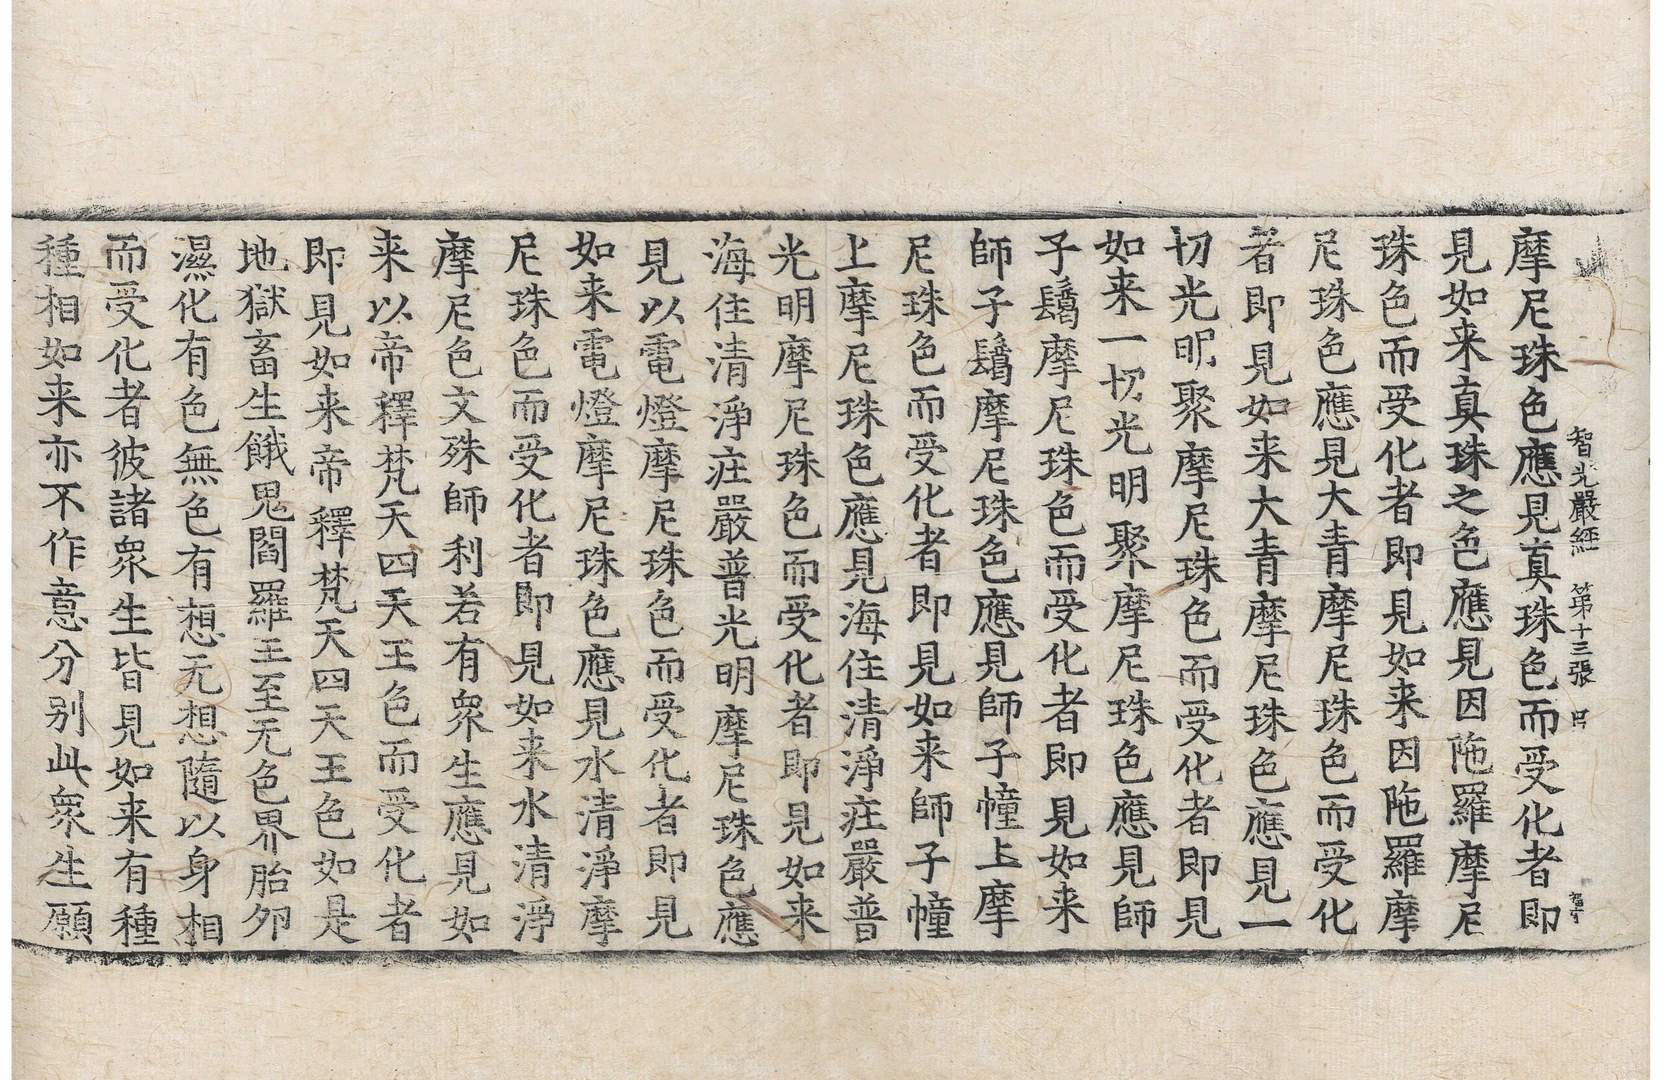 智光嚴經 第十三張
摩尼珠色應見真珠色而受化者即
見如来真珠之色應見因陁羅摩尼
珠色而受化者即見如来因陁羅摩
尼珠色應見大青摩尼珠色而受化
者即見如来大青摩尼珠色應見一
切光明聚摩尼珠色而受化者即見
如来一切光明聚摩尼珠色應見師
子髾摩尼珠色而受化者即見如来
師子髾摩尼珠色應見師子幢上摩
尼珠色而受化者即見如来師子幢
上摩尼珠色應見海住清淨庄嚴普
光明摩尼珠色而受化者即見如来
海住清淨庄嚴普光明摩尼珠色應
見以電燈摩尼珠色而受化者即見
如来電燈摩尼珠色應見水清淨摩
尼珠色而受化者即見如来水清淨
摩尼色文殊師利若有衆生應見如
来以帝釋梵天四天王色而受化者
即見如来帝釋梵天四天王色如是
地獄畜生餓鬼閻羅王至无色界胎夘
濕化有色無色有想无想隨以身相
而受化者彼諸衆生皆見如来有種
種相如来亦不作意分别此衆生願